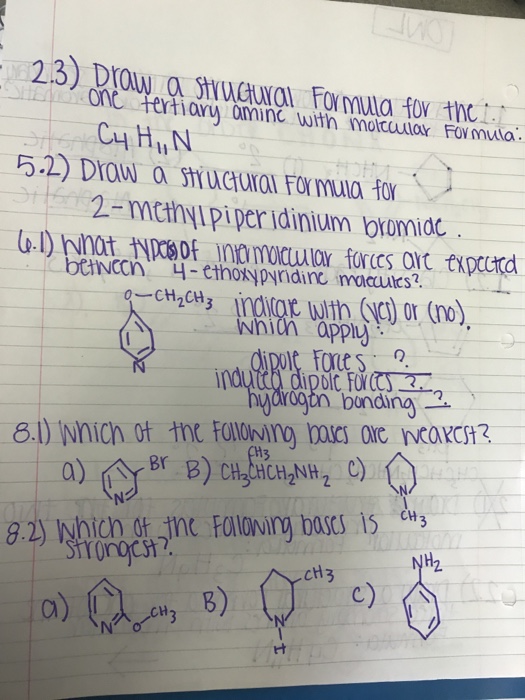 2.3) Draw a structural Formula for the
one tertiary amine with molecular Formula:
C4 H11 N
5.2) Draw a structural Formula for
2-methylpiperidinium bromide.
6.1) What types of intermolecular forces are expected
between 4-ethoxypyridine molecules?
O-CH2CH3
indicate with (yes) or (no).
which apply:
N
dipole Forces: ?
induced dipole Forces ?
hydrogen bonding ?
8.1) Which of the Following bases are weakest?
a) Br N B) CH3CHCH2NH2 CH3 C) N CH3
8.2) Which of the Following bases is
strongest?
a) N O CH3 B) CH3 N H C) NH2